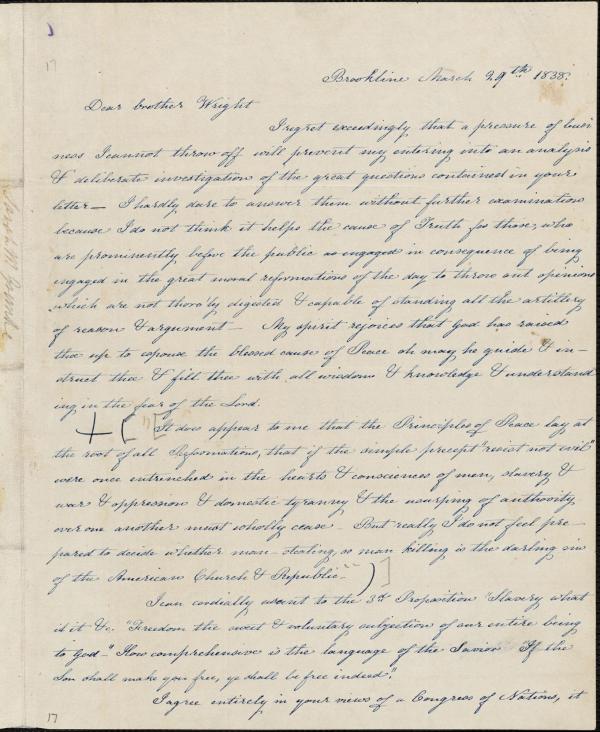 17
Brookline March 29th 1838.
Dear brother Wright
I regret exceedingly that a pressure of busi
ness I cannot throw off will prevent my entering into an analysis
& deliberate investigation of the great questions contained in your
letter — I hardly dare to answer them without further examination
because I do not think it helps the cause of Truth for those, who
are prominently before the public as engaged in consequence of being
engaged in the great moral reformations of the day to throw out opinions
which are not thoro'ly digested & capable of standing all the artillery
of reason & argument — My spirit rejoices that God has raised
thee up to espouse the blessed cause of Peace oh may he guide & in-
struct thee & fill thee with all wisdom & knowledge & understand
ing in the fear of the Lord.
+ [ "[ It does appear to me that the Principles of Peace lay at
the root of all Reformations, that if the simple precept "resist not evil"
were once entrenched in the hearts & consciences of men, slavery &
war & oppression & domestic tyranny & the usurping of authority
over one another must wholly cease — But really I do not feel pre-
pared to decide whether man-stealing or man killing is the darling sin
of the American Church & Republic — " ) ]
I can cordially assent to the 3rd Proposition "Slavery what
is it &c. "Freedom the sweet & voluntary subjection of our entire being
to God —" How comprehensive is the language of the Savior "If the
Son shall make you free, ye shall be free indeed."
I agree entirely in your views of a Congress of Nations, it
17